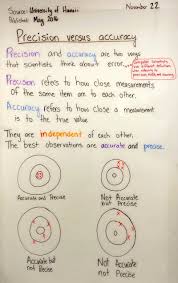 Source: University of Hawaii
November 22
Published: May, 2016
Precision versus accuracy
Precision and accuracy are two ways
that scientists think about error.
Precision refers to how close measurements
of the same item are to each other.
Accuracy refers to how close a measurement
is to the true value
They are independent of each other.
The best observations are accurate and precise.
Accurate and Precise
Not Accurate
but Precise
Accurate but
not Precise
Not Accurate
not Precise